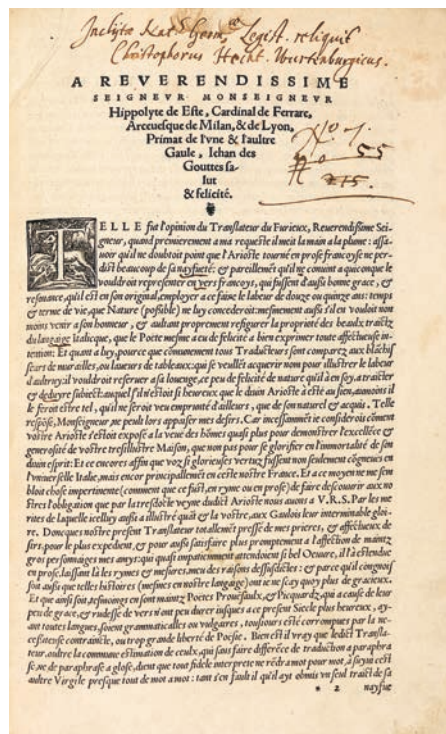 Inclytæ Nat. Germ. Legist. reliquit
Christophorus Hecht. Wurtenburgicus.
A REVERENDISSIME
SEIGNEVR MONSEIGNEVR
Hippolyte de Este, Cardinal de Ferrare,
Arceuesque de Milan, & de Lyon,
Primat de l'vne & l'aultre
Gaule, Iehan des
Gouttes sa-
lut
& felicité.
No 7.
No 55
215.
TELLE fut l'opinion du Translateur du Furieux, Reuerendissime Sei-
gneur, quand premierement a ma requeste il meit la main a la plume: assa-
uoir qu'il ne doubtoit point que l'Arioste tourné en prose francoyse ne per-
dist beaucoup de sa nayfueté: & pareillement qu'il ne conuint a quiconque le
vouldroit representer en vers francoys, qui fussent d'aussi bonne grace, &
resonance, qu'il est en son original, employer a ce faire le labeur de douze ou quinze ans: temps
& terme de vie, que Nature (possible) ne luy concederoit: mesmement aussi s'il en vouloit non
moins venir a son honneur, & aultant proprement refigurer la proprieté des beaulx traictz
du langaige Italicque, que le Poete mesme a eu de felicité a bien exprimer toute affectueuse in-
tention: Et quant a luy, pource que cõmunement tous Traducteurs sont comparez aux blãchis-
seurs de murailles, ou laueurs de tableaux: qui se veullẽt acquerir nom pour illustrer le labeur
d'aultruy: il vouldroit reseruer a sa louenge, ce peu de felicité de nature qu'il à en soy, a traicter
& deduyre subiect: auquel s'il n'estoit si heureux que le diuin Arioste à esté au sien, aumoins il
le feroit estre tel, qu'il ne seroit veu emprunté d'ailleurs, que de son naturel & acquis. Telle
respõse, Monseigneur, ne peult lors appaiser mes desirs. Car incessammẽt ie considerois cõment
vostre Arioste s'estoit exposé a la veue des hõmes quasi plus pour demonstrer l'excellẽce &
generosité de vostre tresillustre Maison, que non pas pour se glorifier en l'immortalité de son
diuin esprit: Et ce encores affin que voz si glorieuses vertuz fussent non seulement cõgneues en
l'vniuerselle Italie, mais encor principallemẽt en ceste nostre France. Et a ce moyen ne me sem
bloit chose impertinente (comment que ce fust, en ryme ou en prose) de faire descouurir aux no
stres l'obligation que par la tresdocte veyne dudict Arioste nous auons a V.R.S. Par les me
rites de laquelle icelluy aussi a illustré quãt & la vostre, aux Gaulois leur interminable gloi-
re. Doncques nostre present Translateur totallemẽt pressé de mes prieres, & affectueux de-
sirs, pour le plus expedient, & pour aussi satisfaire plus promptement a l'affection de maintz
gros personnaiges mes amys: qui quasi impatiemment attendoient si bel Oeuure, il l'à estendue
en prose, laissant là les rymes & mesures, meu des raisons dessusdictes: & parce qu'il congnois
soit aussi que telles histoires (mesmes en nostre langaige) ont ie ne scay quoy plus de gracieux.
Et que ainsi soit, tesmoings en sont maintz Poetes Prouẽsaulx, & Picquardz, qui a cause de leur
peu de grace, & rudesse de vers n'ont peu durer iusques a ce present Siecle plus heureux, ay-
ant toutes langues, soient grammaticalles ou vulgaires, tousiours esté corrompues par la ne-
cessiteuse contraincte, ou trop grande liberté de Poesie. Bien est il vray que ledict Transla-
teur, oultre la commune estimation de ceulx, qui sans faire differẽce de traduction a paraphra
se, ne de paraphrase a glose, dient que tout fidele interprete ne rẽdra mot pour mot, à suyui cest
aultre Virgile presque tout de mot a mot: tant s'en fault il qu'il ayt obmis vn seul traict de sa
* 2 nayfue